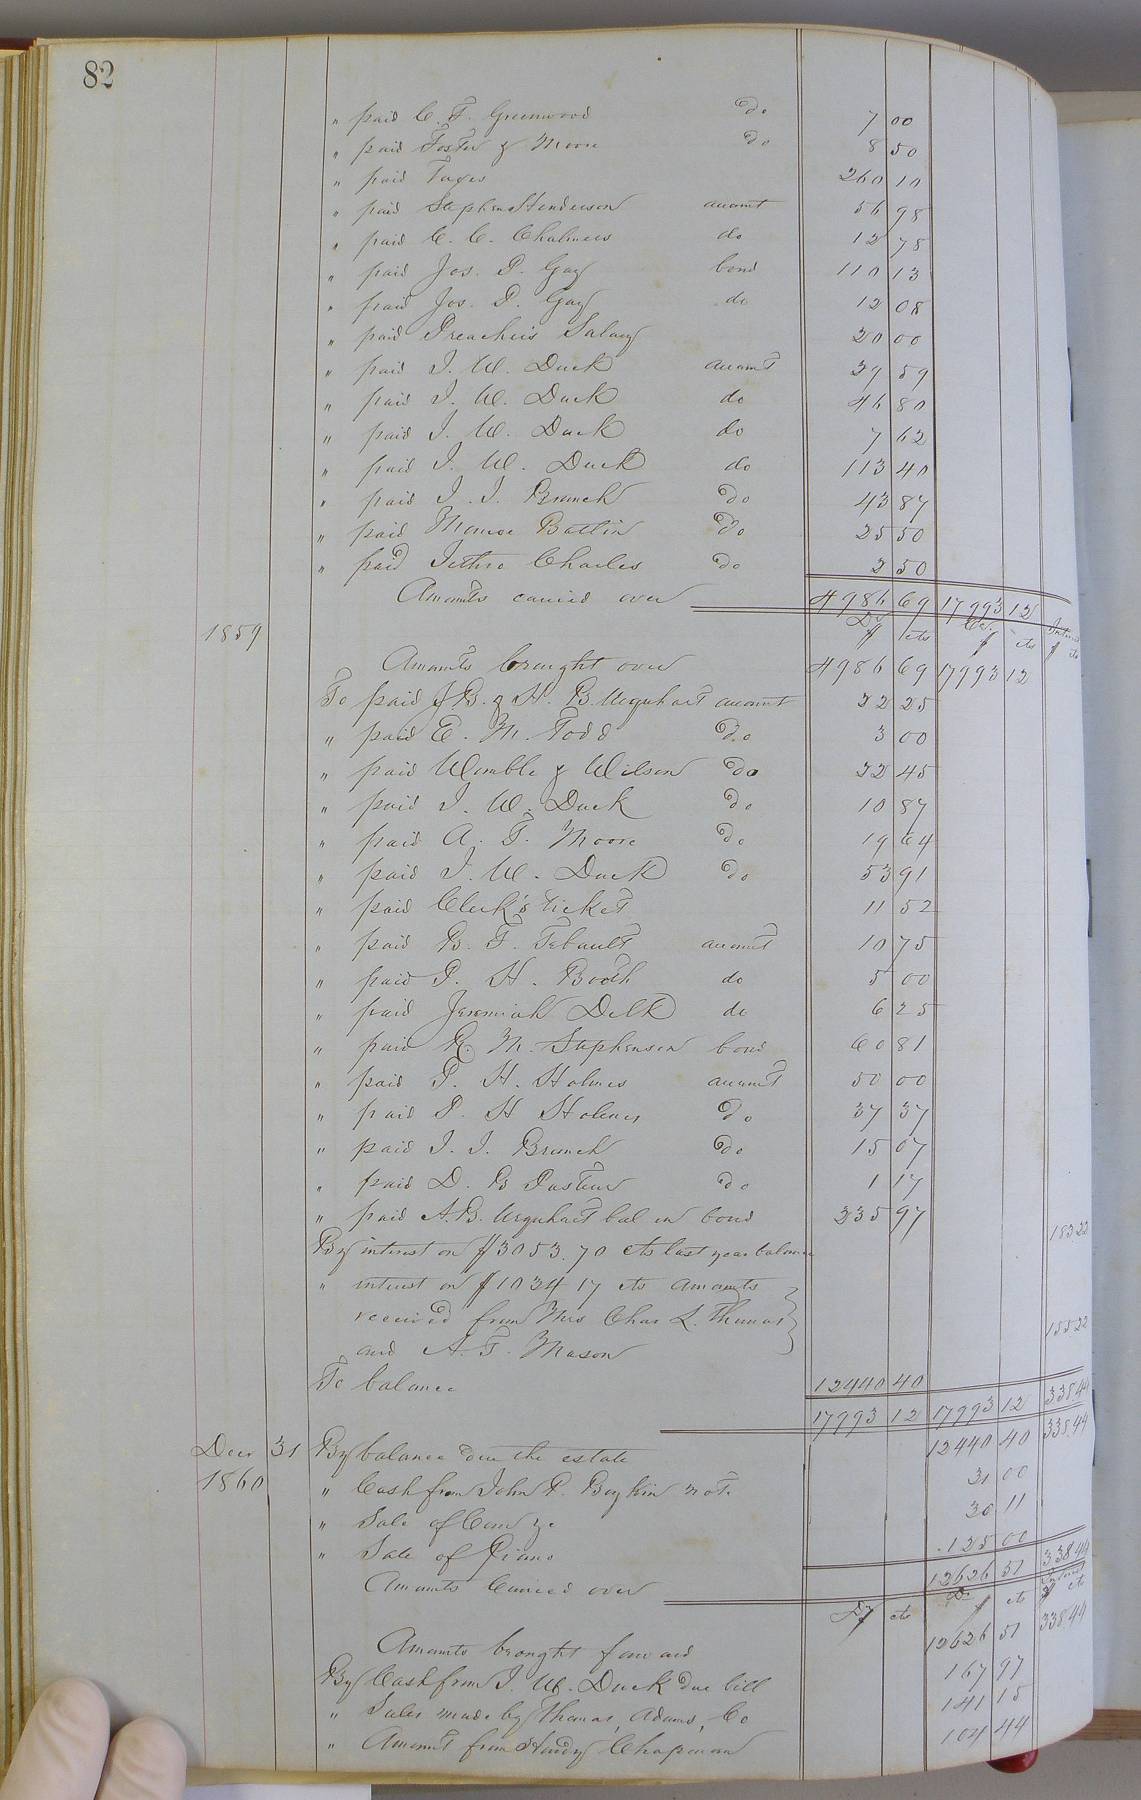 82
" paid C. F. Greenwood do 7 00
" paid Foster & Moore do 8 50
" paid Taxes 260 10
" paid Stephen Henderson account 56 98
" paid C. C. Chalmers do 12 75
" paid Jos. P. Gay bond 110 13
" paid Jos. P. Gay do 12 08
" paid Preacher's Salary 20 00
" paid J. W. Duck account 29 59
" paid J. W. Duck do 46 80
" paid J. W. Duck do 7 62
" paid J. W. Duck do 113 40
" paid J. J. Branch do 43 87
" paid Monroe Battin do 25 50
" paid Jethro Charles do 2 50
Amounts carried over 4986 69 17993 12
1859 Dr Cr. Interest
$ cts $ cts $ cts
Amounts brought over 4986 69 17993 12
To paid J B. & H. B. Urquhart account 22 25
" paid E. M. Todd do 3 00
" paid Womble & Wilson do 22 45
" paid J. W. Duck do 10 87
" paid A. F. Moore do 19 64
" paid J. W. Duck do 53 91
" paid Clerk's ticket 11 52
" paid B. F. Tebault account 10 75
" paid P. H. Booth do 5 00
" paid Jeremiah Delk do 6 25
" paid R. M. Stephenson bond 60 81
" paid P. H. Holmes account 50 00
" paid P. H Holmes do 37 37
" paid J. J. Branch do 15 07
" paid D. B Pasteur do 1 17
" paid A. B. Urquhart bal on bond 235 97
By interest on $3053.70 cts last year balance 183 22
" interest on $1034 17 cts amounts
received from Mrs Chas L. Thomas
and A. F. Mason 155 22
To balance 12440 40
17993 12 17993 12 338 44
Decr 31 By balance due the estate 12440 40 338 44
1860 " Cash from John P. Boykin note 31 00
" Sale of Corn &c 30 11
" Sale of Piano 125 00
Amounts Carried over 12626 51 338 44
$ cts $ cts $ cts
Amounts brought forward 12626 51 338 44
By Cash from J. W. Duck due bill 167 97
" Sales made by Thomas, Adams, Co 141 15
" Amount from Hardy Chapman 104 44